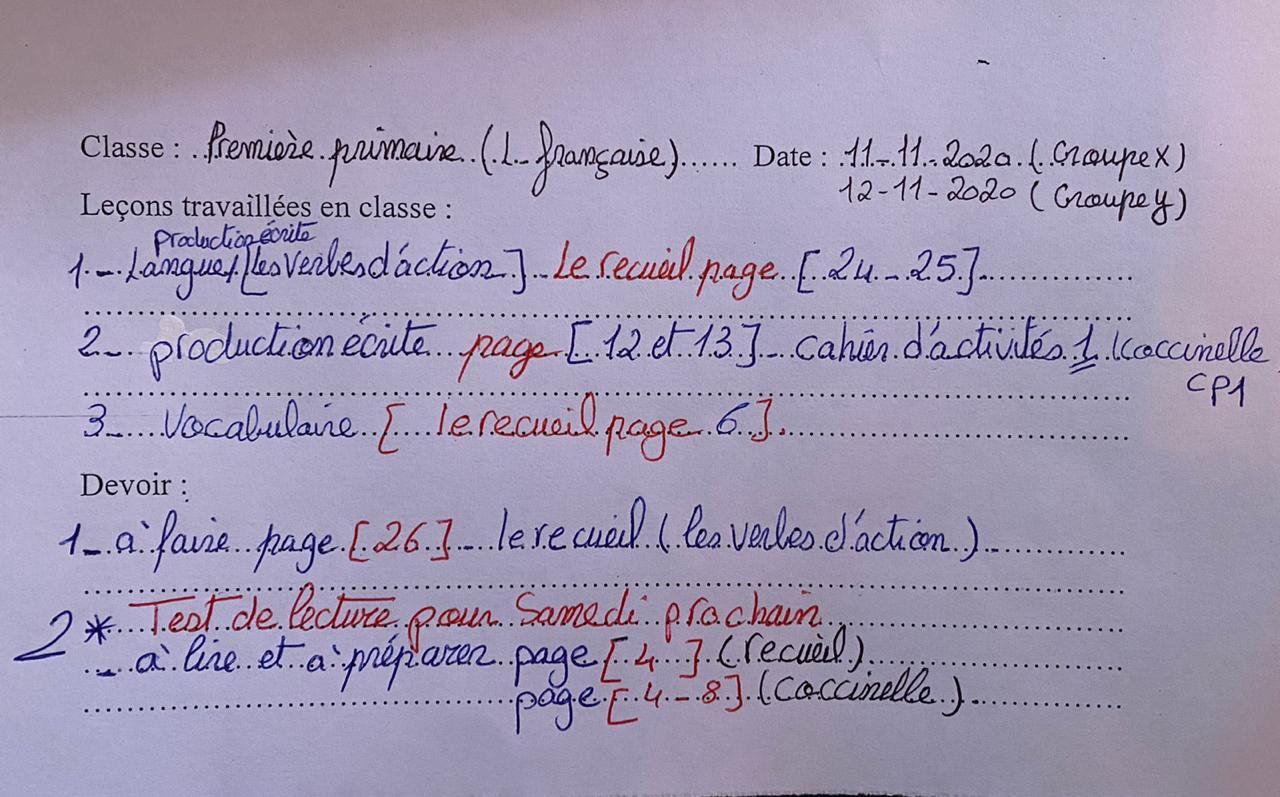 Classe : Première primaire (L. française) Date : 11-11-2020 (Groupe X)
12-11-2020 (Groupe y)
Leçons travaillées en classe :
production écrite
1- Langue/[les verbes d'action] Le recueil page [24-25]
2- production écrite page [12 et 13] cahier d'activités 1 (coccinelle
CP1
3- Vocabulaire [le recueil page 6].
Devoir :
1- à faire page [26] le recueil (les verbes d'action)
2 * Test de lecture pour Samedi prochain
- à lire et à préparer page [4] (recueil)
page [4-8] (coccinelle)